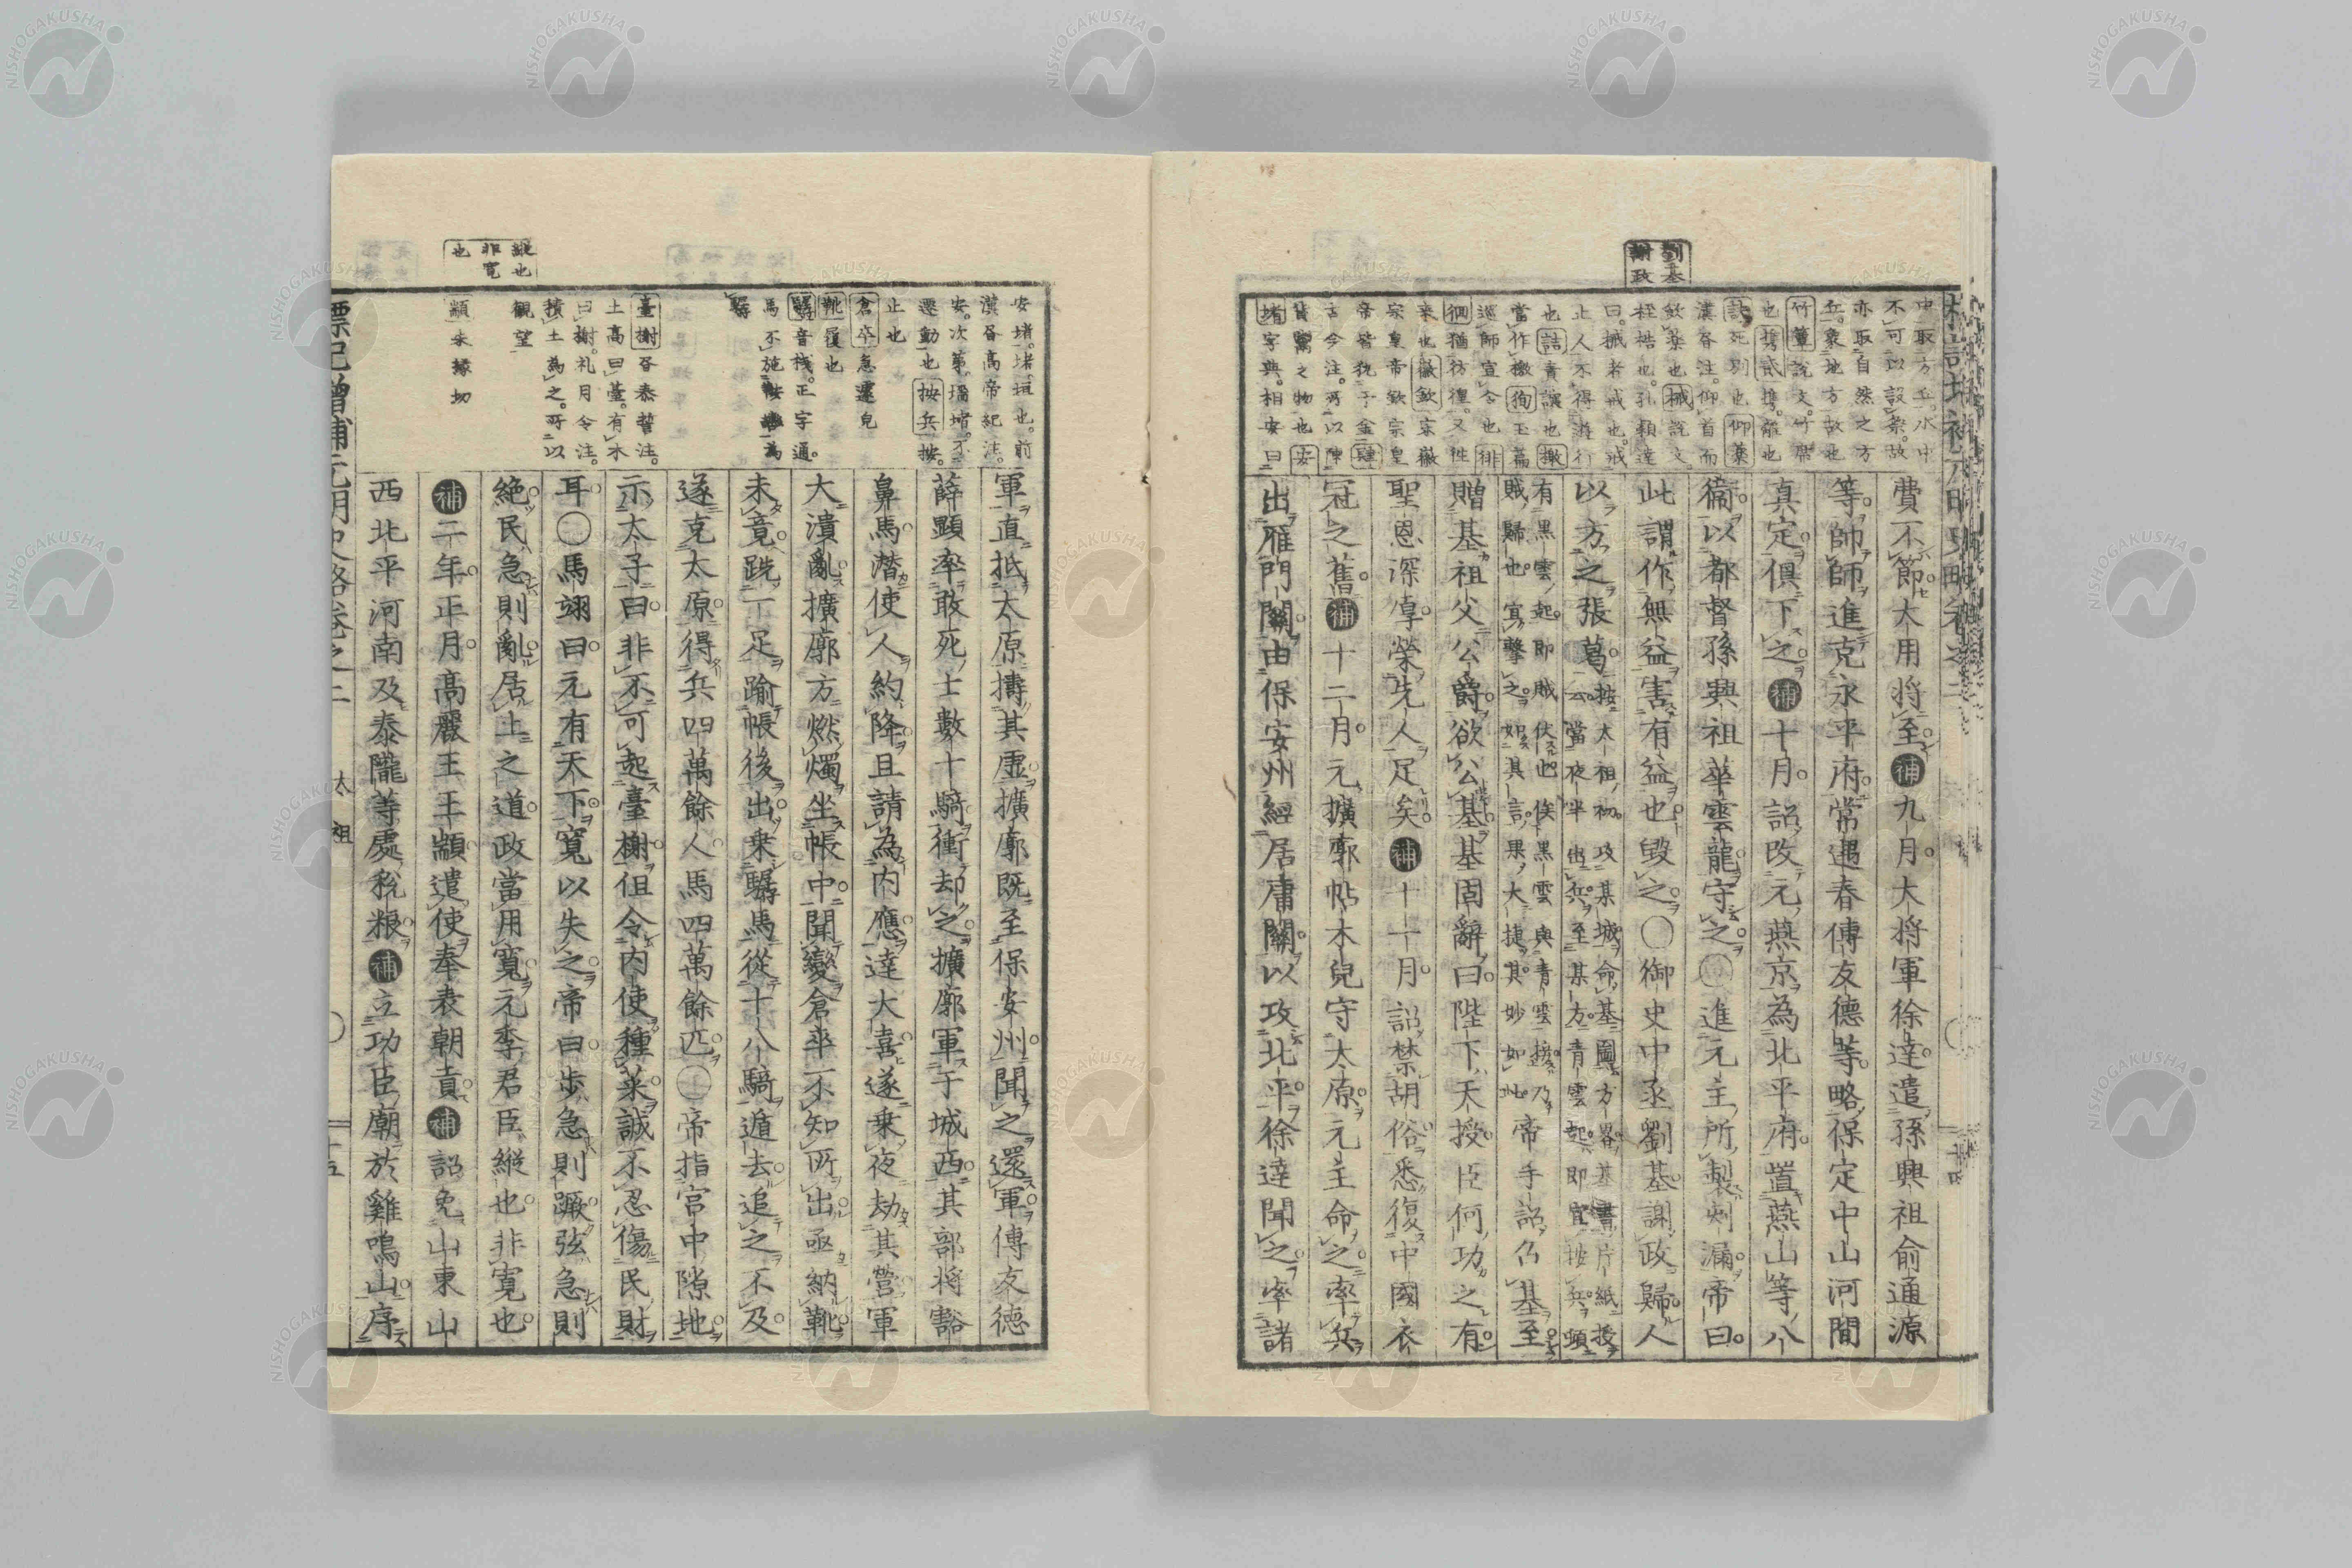 劉基
謝政
中取方乎水中
不可以設祭故
亦取自然之方
兵象地方故也
竹簟說文竹席
也攜貳攜離也
訣死別也仰藥
漢各注仰首而
飲藥也械說文
桎梏也孔穎達
曰械者戒也戒
止人不得遊行
也詰責讓也撤
當作撤狥玉篇
巡師宣令也徘
徊猶彷徨又徃
來也徽欽宋徽
宗皇帝欽宗皇
帝皆執于金肆
古今注所以陳
貨鬻之物也安
堵字典相安曰
費不節大用將至補九月大將軍徐達遣孫興祖俞通源
等師師進克永平府常遇春傅友德等略保定中山河間
真定俱下之補十月詔改元燕京為北平府置燕山等八
衛以都督孫興祖華雲龍守之〇進元主所製刻漏帝曰
此謂作無益害有益也毀之〇御史中丞劉基謝政歸人
以方之張葛按太祖初攻某城命基圖方畧基書片紙授
云當夜半出兵至某方青雲起即宜按兵頃
有黑雲起即賊伏也俟黑雲與青雲接乃
賊歸也宜擊之如其言果大捷其妙如此帝手詔仏基至
贈基祖父公爵欲公基基固辭曰陛下天授臣何功之有
聖恩深厚榮先人足矣補十一月詔禁胡俗悉復中國衣
冠之舊補十二月元擴廓帖木兒守太原元主命之率兵
出雁門關由保安州經居庸關以攻北平徐達聞之率諸
縱也
非寬
也
安堵堵垣也前
漢各高帝紀注
安次第墻堵不
遷動也按兵按
止也
倉卒急遽皃
靴履也
驏音棧正字通
馬不施鞍轡為
驏
臺榭各泰誓注
土高曰臺有木
曰榭礼月令注
積土為之所以
觀望
顓朱緣切
軍直抵太原擣其虛擴廓既至保安州聞之還軍傅友德
薛顯率敢死士數十騎衝却之擴廓軍于城西其部將豁
鼻馬潛使人約降且請為內應達大喜遂乗夜劫其營軍
大潰亂擴廓方燃燭坐帳中聞變倉卒不知所出亟納靴
未竟跣一足踰帳後出乗驏馬從十八騎遁去追之不及
遂克太原得兵四萬餘人馬四萬餘匹〇帝指宮中隙地
示太子曰非不可起臺榭但令內使種菜誠不忍傷民財
耳〇馬翊曰元有天下寬以失之帝曰步急則蹶弦急則
絕民急則亂居上之道政當用寬元季君臣縱也非寬也
補二年正月高麗王王顓遣使奉表朝貢補詔免山東山
西北平河南及秦隴等處稅粮補立功臣廟於雞鳴山序
標記增補元明史略卷之二 太祖 二十五